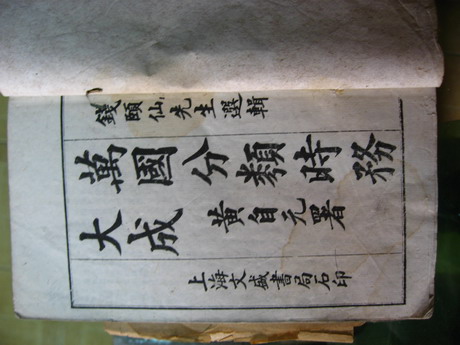 錢頤仙先生選輯
萬國分類時務
大成 黃自元署
上海文盛書局石印